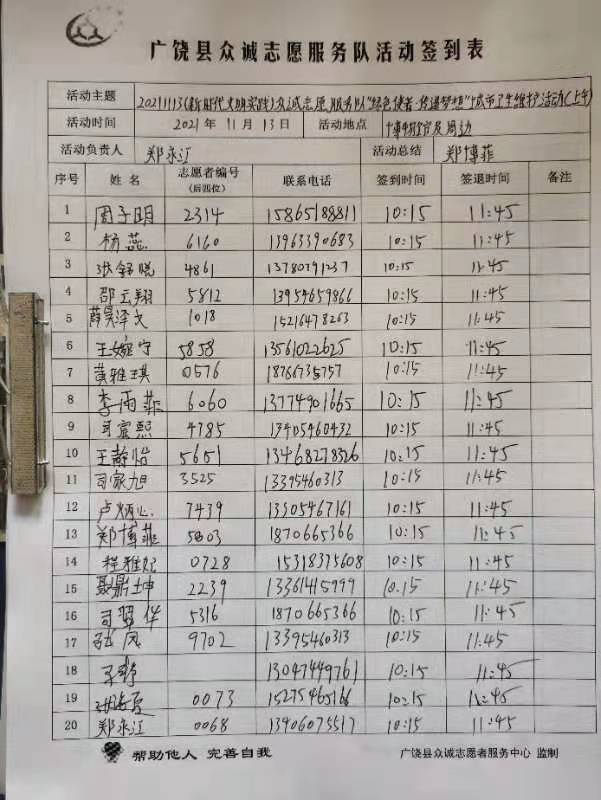 广饶县众诚志愿服务队活动签到表
活动主题 20211113(新时代文明实践)众诚志愿服务队"绿色使者·传递梦想"城市卫生维护活动(上午)
活动时间 2021年11月13日 活动地点 博物馆及周边
活动负责人 郑永江 活动总结 郑博菲
序号 姓名 志愿者编号(后四位) 联系电话 签到时间 签退时间 备注
1 周子明 2314 15865188811 10:15 11:45
2 杨蕊 6160 11963390683 10:15 11:45
3 4861 13780791237 10:15 11:45
4 邵云翔 5812 13954659866 10:15 11:45
5 薛昊泽文 1018 15216478263 10:15 11:45
6 王婉宁 5858 13561022625 10:15 11:45
7 黄雅琪 0576 18766735757 10:15 11:45
8 李雨菲 6060 13774901665 10:15 11:45
9 司宸熙 4785 13405460432 10:15 11:45
10 王静怡 5651 13468278326 10:15 11:45
11 司家旭 3525 13395460313 10:15 11:45
12 卢炳心 7439 13305467161 10:15 11:45
13 郑博菲 5803 1870665366 10:15 11:45
14 程雅妃 0728 15318375608 10:15 11:45
15 聂鼎坤 2239 13361415999 10:15 11:45
16 司翠华 5316 1870665366 10:15 11:45
17 张凤 9702 13395460313 10:15 11:45
18 13047449761 10:15 11:45
19 0073 15275465166 10:15 11:45
20 郑永江 0068 13406075517 10:15 11:45
帮助他人 完善自我 广饶县众诚志愿者服务中心 监制